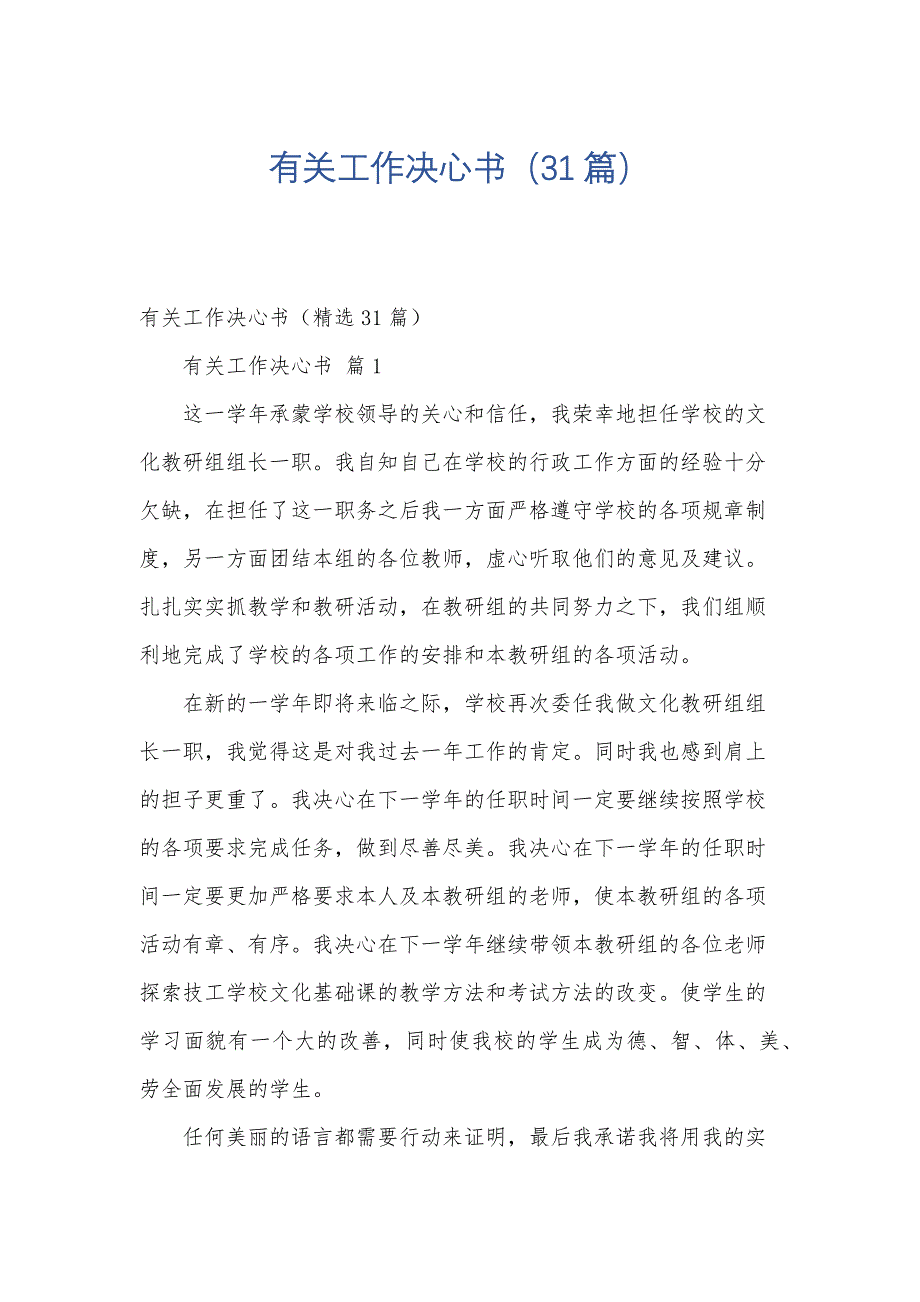 有关工作决心书（31 篇）
有关工作决心书（精选 31 篇）
有关工作决心书 篇 1
这一学年承蒙学校领导的关心和信任，我荣幸地担任学校的文
化教研组组长一职。我自知自己在学校的行政工作方面的经验十分
欠缺，在担任了这一职务之后我一方面严格遵守学校的各项规章制
度，另一方面团结本组的各位教师，虚心听取他们的意见及建议。
扎扎实实抓教学和教研活动，在教研组的共同努力之下，我们组顺
利地完成了学校的各项工作的安排和本教研组的各项活动。
在新的一学年即将来临之际，学校再次委任我做文化教研组组
长一职，我觉得这是对我过去一年工作的肯定。同时我也感到肩上
的担子更重了。我决心在下一学年的任职时间一定要继续按照学校
的各项要求完成任务，做到尽善尽美。我决心在下一学年的任职时
间一定要更加严格要求本人及本教研组的老师，使本教研组的各项
活动有章、有序。我决心在下一学年继续带领本教研组的各位老师
探索技工学校文化基础课的教学方法和考试方法的改变。使学生的
学习面貌有一个大的改善，同时使我校的学生成为德、智、体、美、
劳全面发展的学生。
任何美丽的语言都需要行动来证明，最后我承诺我将用我的实